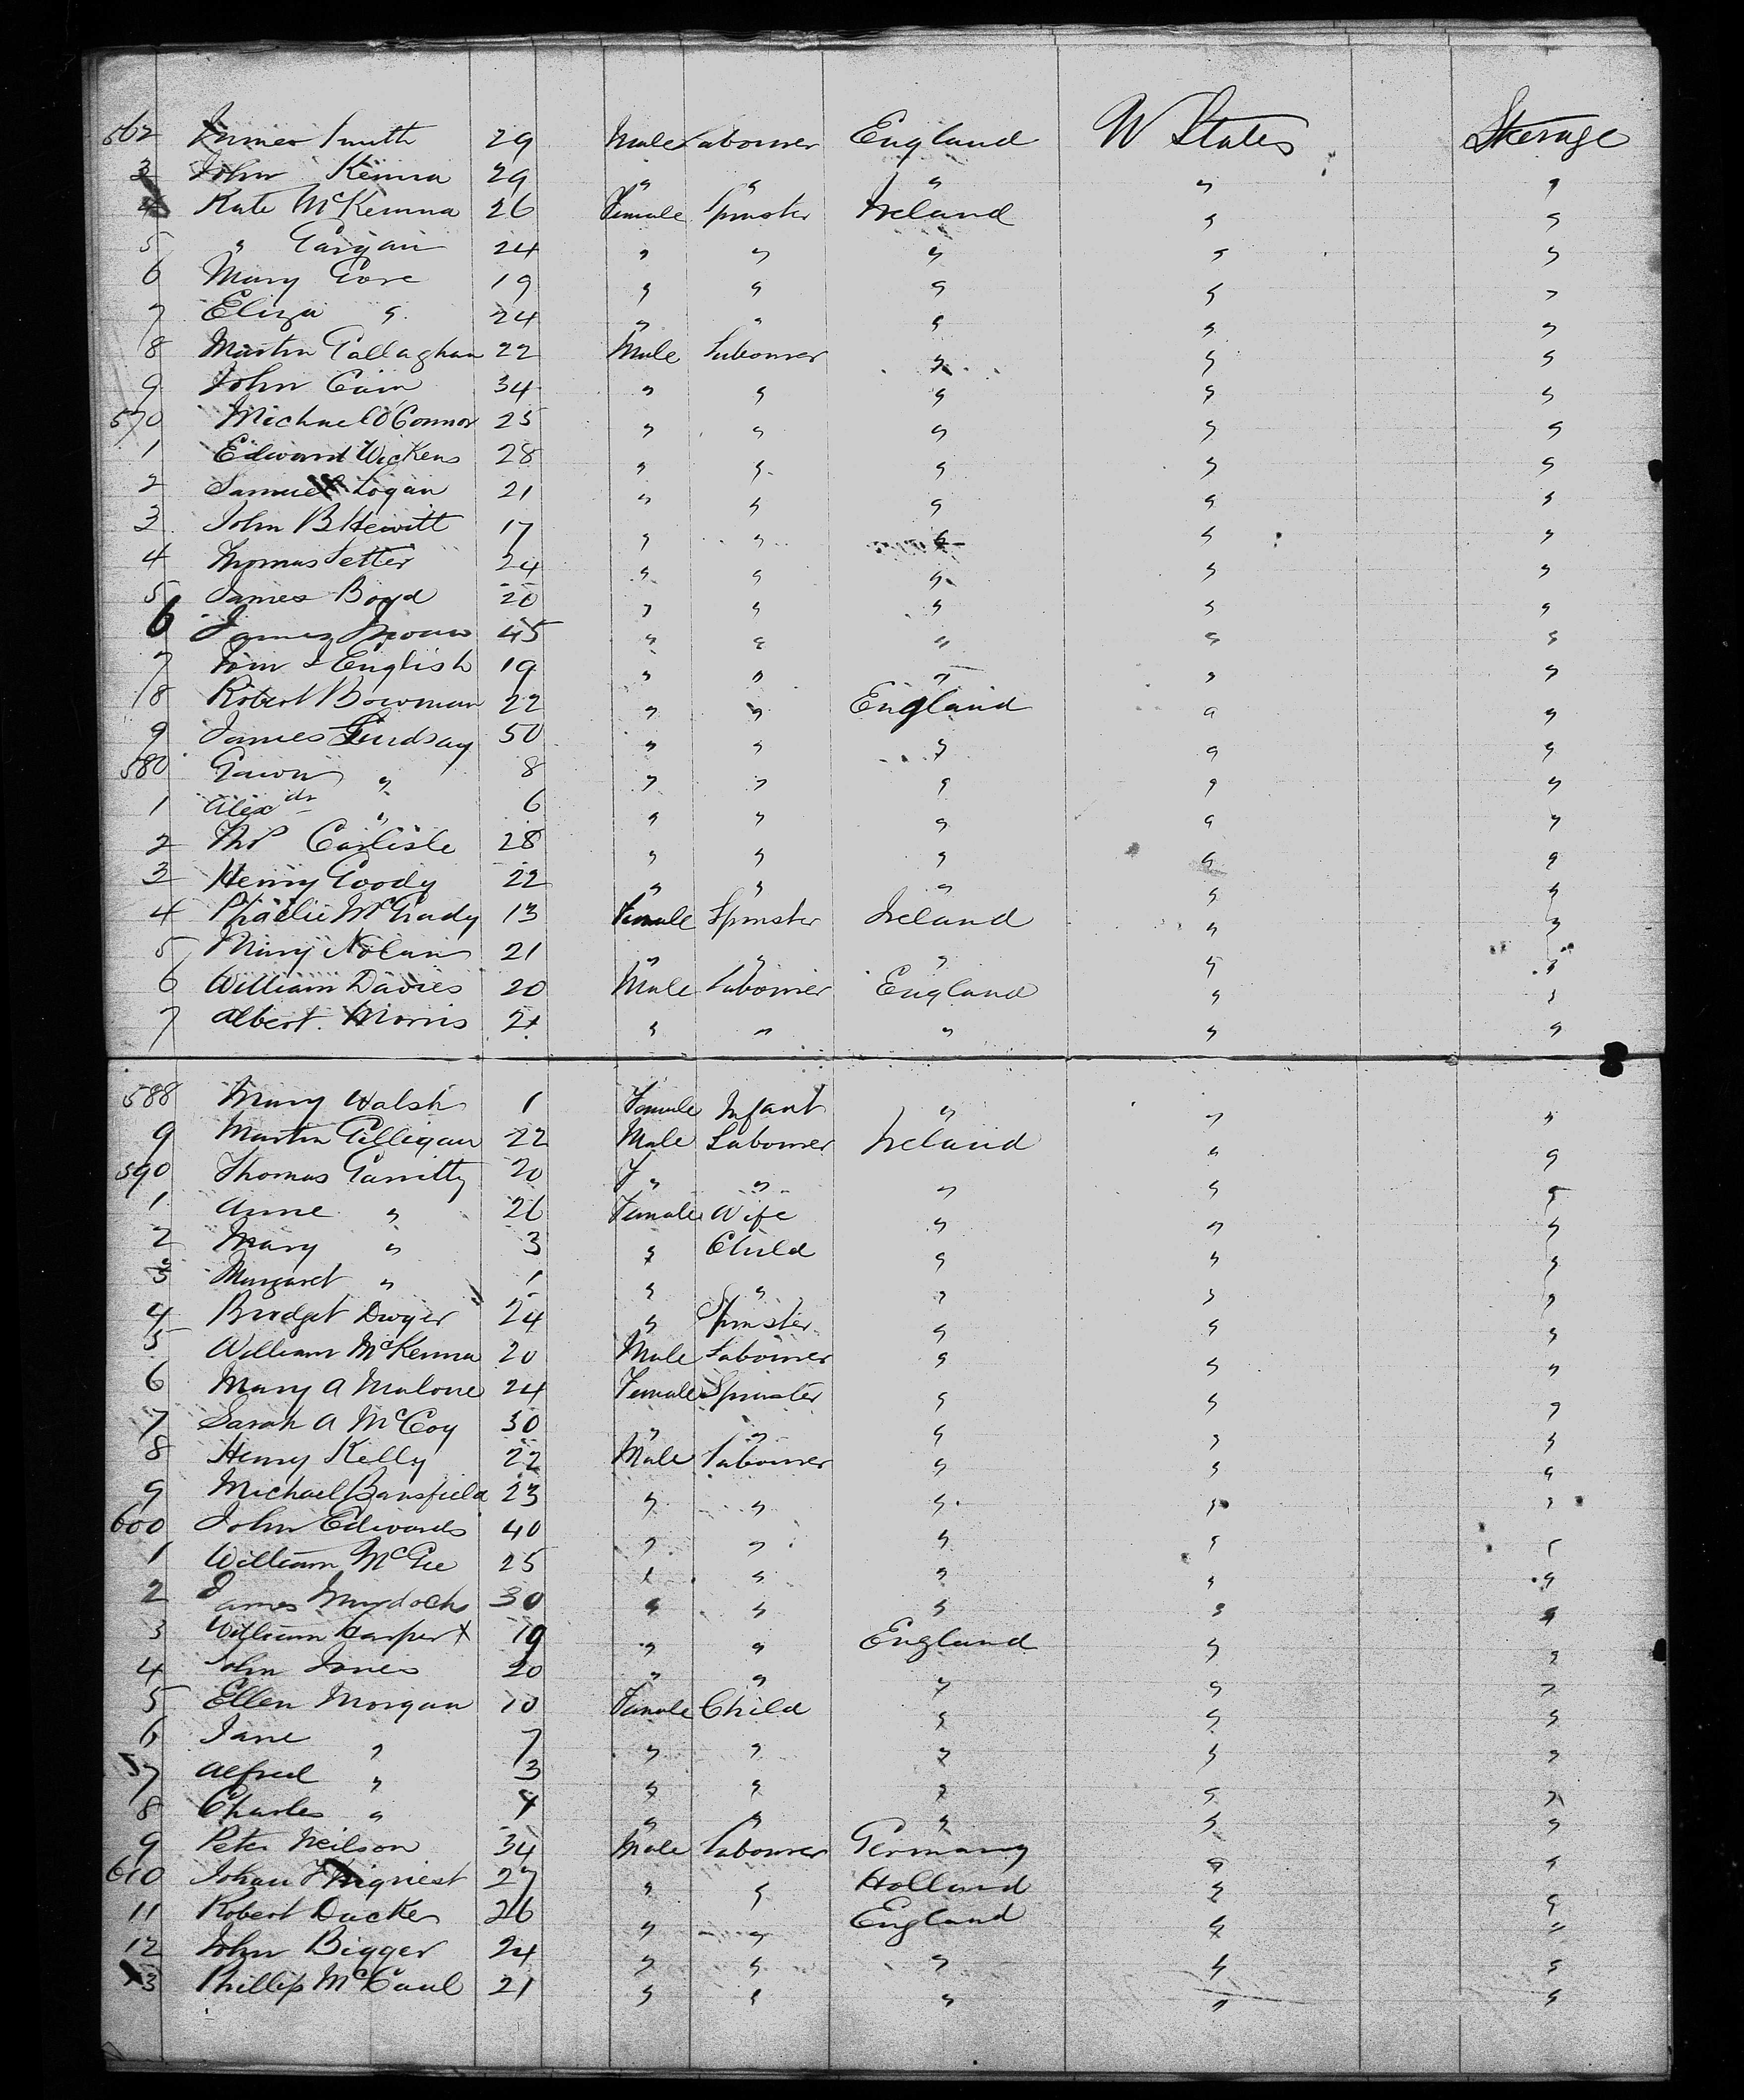 562 James Smith 29 Male Labourer England U States Steerage
3 John Kenna 29 " " " " "
4 Kate McKenna 26 Female Spinster Ireland " "
5 " Gargan 24 " " " " "
6 Mary Gore 19 " " " " "
7 Eliza " 24 " " " " "
8 Martin Gallaghan 22 Male Labourer " " "
9 John Cain 34 " " " " "
570 Michael O'Connor 25 " " " " "
1 Edward Wickens 28 " " " " "
2 Samuel Logan 21 " " " " "
3 John B Hewitt 17 " " " " "
4 Thomas Setter 24 " " " " "
5 James Boyd 20 " " " " "
6 James 45 " " " " "
7 English 19 " " " " "
8 Robert Bowman 22 " " England " "
9 James Lindsay 50 " " " " "
580 Gawn " 8 " " " " "
1 Alexdr " 6 " " " " "
2 Thos Carlisle 28 " " " " "
3 Henry Goody 22 " " " " "
4 McGrady 13 Female Spinster Ireland " "
5 Mary Nolan 21 " " " " "
6 William Davies 20 Male Labourer England " "
7 Albert Morris 21 " " " " "
588 Mary Walsh 1 Female Infant " " "
9 Martin Gilligan 22 Male Labourer Ireland " "
590 Thomas Garritty 20 " " " " "
1 Anne " 26 Female Wife " " "
2 Mary " 3 " Child " " "
3 Margaret " 1 " " " " "
4 Bridget Dwyer 24 " Spinster " " "
5 William McKenna 20 Male Labourer " " "
6 Mary A Malone 24 Female Spinster " " "
7 Sarah A McCoy 30 " " " " "
8 Henry Kelly 22 Male Labourer " " "
9 Michael Bansfield 23 " " " " "
600 John Edwards 40 " " " " "
1 William McGee 25 " " " " "
2 James Murdoch 30 " " " " "
3 William Harper x 19 " " England " "
4 John Jones 20 " " " " "
5 Ellen Morgan 10 Female Child " " "
6 Jane " 7 " " " " "
7 Alfred " 3 " " " " "
8 Charles " " " " " "
9 Peter Neilson 34 Male Labourer Germany " "
610 Johan 27 " " Holland " "
11 Robert Ducker 26 " " England " "
12 John Bigger 24 " " " " "
13 Phillip McCaul 21 " " " " "